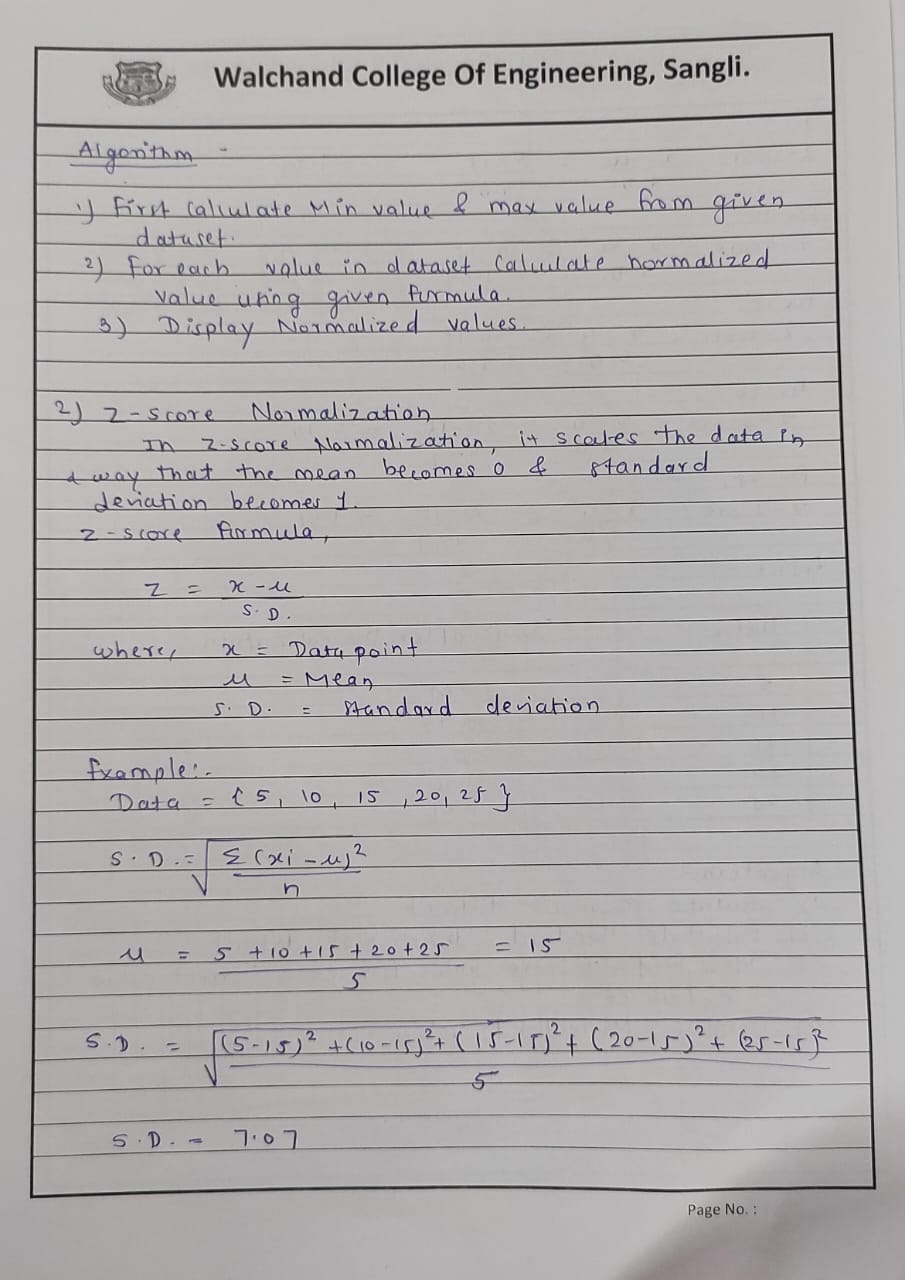 Walchand College Of Engineering, Sangli.
Algorithm -
1) First Calculate Min value & max value from given
dataset.
2) For each value in dataset Calculate normalized
value using given formula.
3) Display Normalized values.
2) Z-score Normalization
In Z-score Normalization, it scales the data in
a way that the mean becomes 0 & standard
deviation becomes 1.
z-score formula,
Z = x - μ
S.D.
where, x = Data point
μ = Mean
S.D. = Standard deviation
Example:-
Data = {5, 10, 15, 20, 25}
S.D. = √ Σ(xi - μ)²
n
μ = 5 + 10 + 15 + 20 + 25 = 15
5
S.D. = √ (5-15)² + (10-15)² + (15-15)² + (20-15)² + (25-15)²
5
S.D. = 7.07
Page No. :